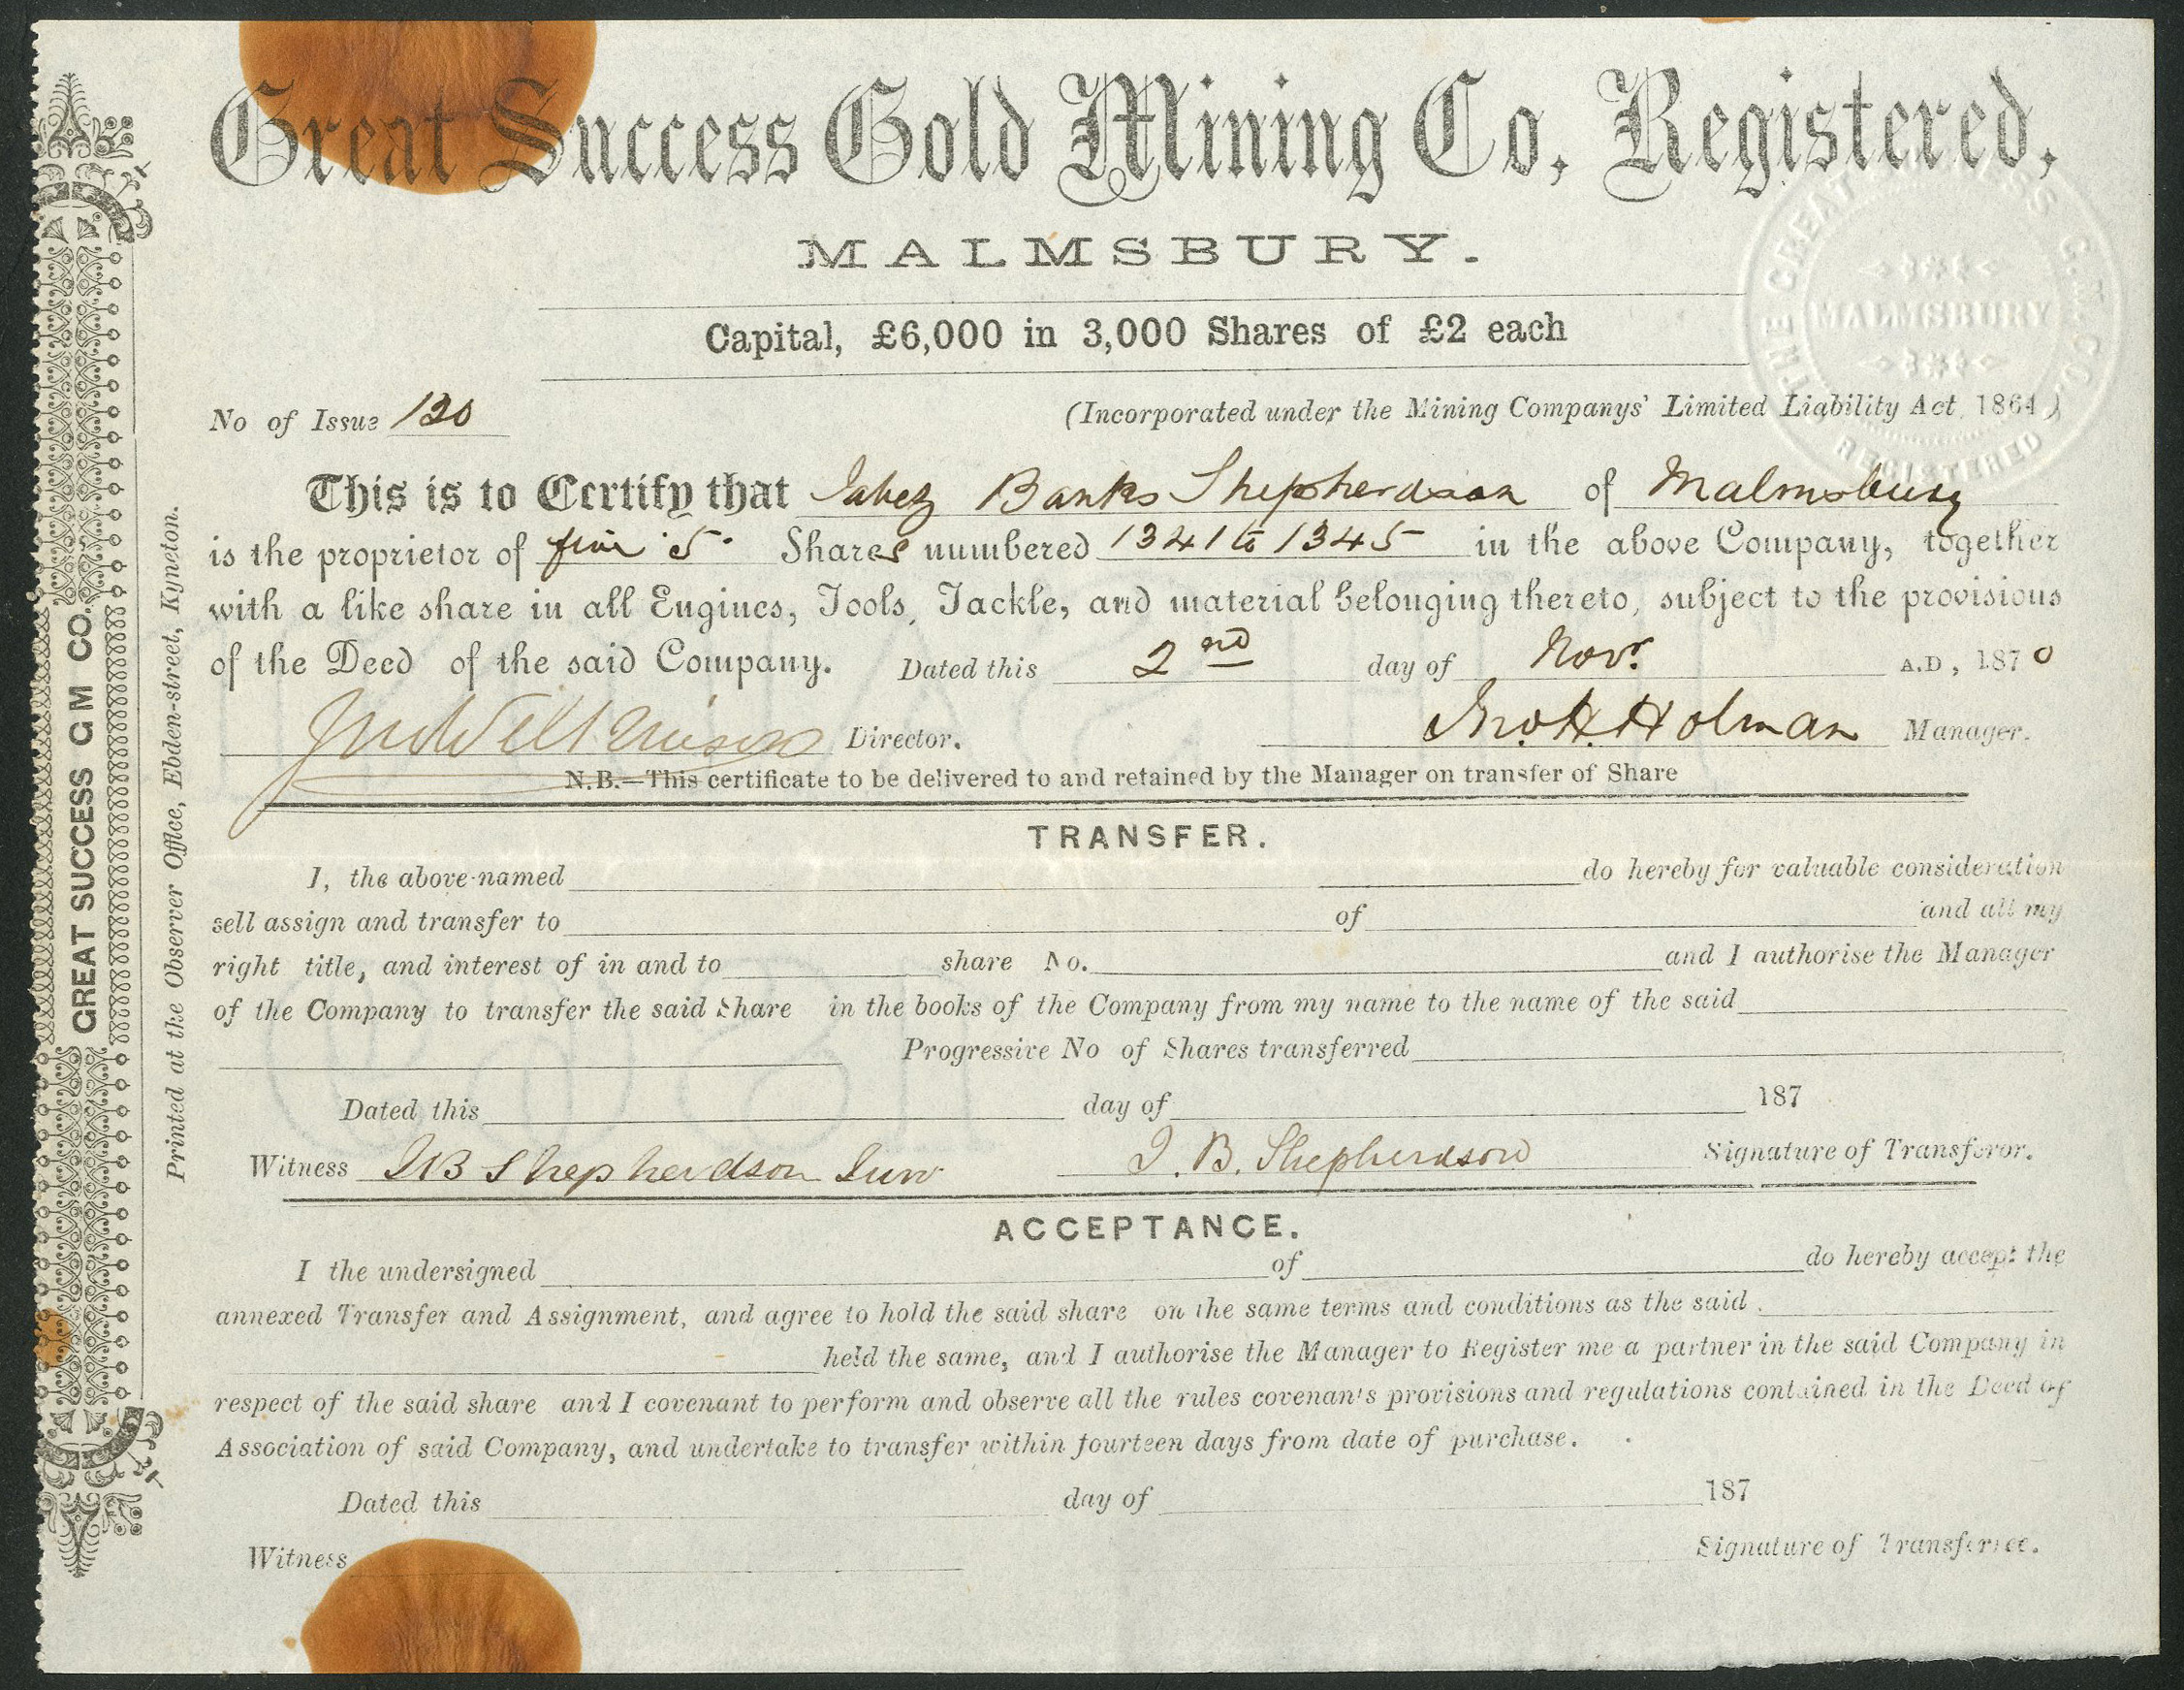 Great Success Gold Mining Co, Registered,
MALMSBURY.
Capital, £6,000 in 3,000 Shares of £2 each
No of Issue 120
(Incorporated under the Mining Companys' Limited Liability Act, 1864)
This is to Certify that Jabez Banks Shepherdson of Malmsbury
is the proprietor of five 5 Shares numbered 1341 to 1345 in the above Company, together
with a like share in all Engines, Tools, Tackle, and material belonging thereto, subject to the provisions
of the Deed of the said Company. Dated this 2nd day of Novr. A.D, 1870
Director. Jno. H. Holman Manager.
N.B.—This certificate to be delivered to and retained by the Manager on transfer of Share
TRANSFER.
I, the above-named do hereby for valuable consideration
sell assign and transfer to of and all my
right title, and interest of in and to share No. and I authorise the Manager
of the Company to transfer the said Share in the books of the Company from my name to the name of the said
Progressive No of Shares transferred
Dated this day of 187
Witness JB Shepherdson Junr J. B. Shepherdson Signature of Transferor.
ACCEPTANCE.
I the undersigned of do hereby accept the
annexed Transfer and Assignment, and agree to hold the said share on the same terms and conditions as the said
held the same, and I authorise the Manager to Register me a partner in the said Company in
respect of the said share and I covenant to perform and observe all the rules covenan's provisions and regulations contained in the Deed of
Association of said Company, and undertake to transfer within fourteen days from date of purchase.
Dated this day of 187
Witness Signature of Transferree.
GREAT SUCCESS G M CO.
Printed at the Observer Office, Ebden-street, Kyneton.
THE GREAT SUCCESS G.M. CO.
MALMSBURY
REGISTERED